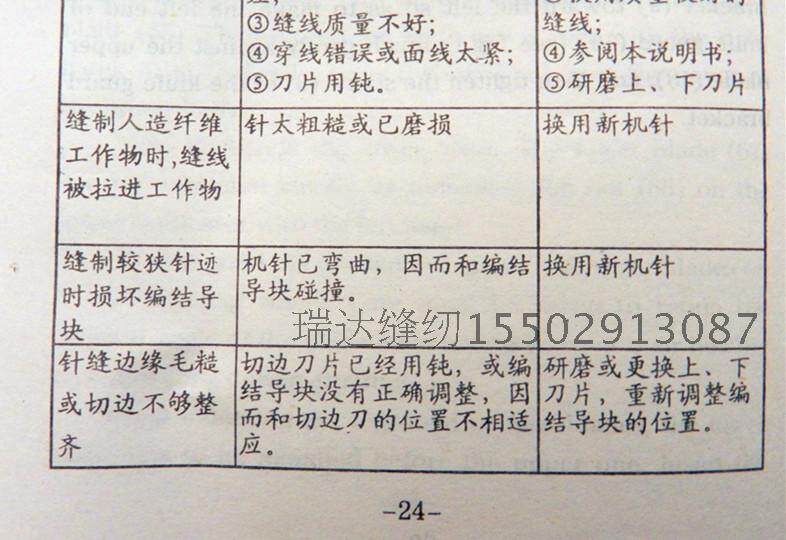 ③缝线质量不好;
④穿线错误或面线太紧;
⑤刀片用钝.
缝线;
④参阅本说明书;
⑤研磨上、下刀片
缝制人造纤维
工作物时,缝线
被拉进工作物
针太粗糙或已磨损
换用新机针
缝制较狭针迹
时损坏编结导
块
机针已弯曲，因而和编结
导块碰撞。
换用新机针
瑞达缝纫15502913087
针缝边缘毛糙
或切边不够整
齐
切边刀片已经用钝，或编
结导块没有正确调整，因
而和切边刀的位置不相适
应。
研磨或更换上、下
刀片，重新调整编
结导块的位置。
-24-